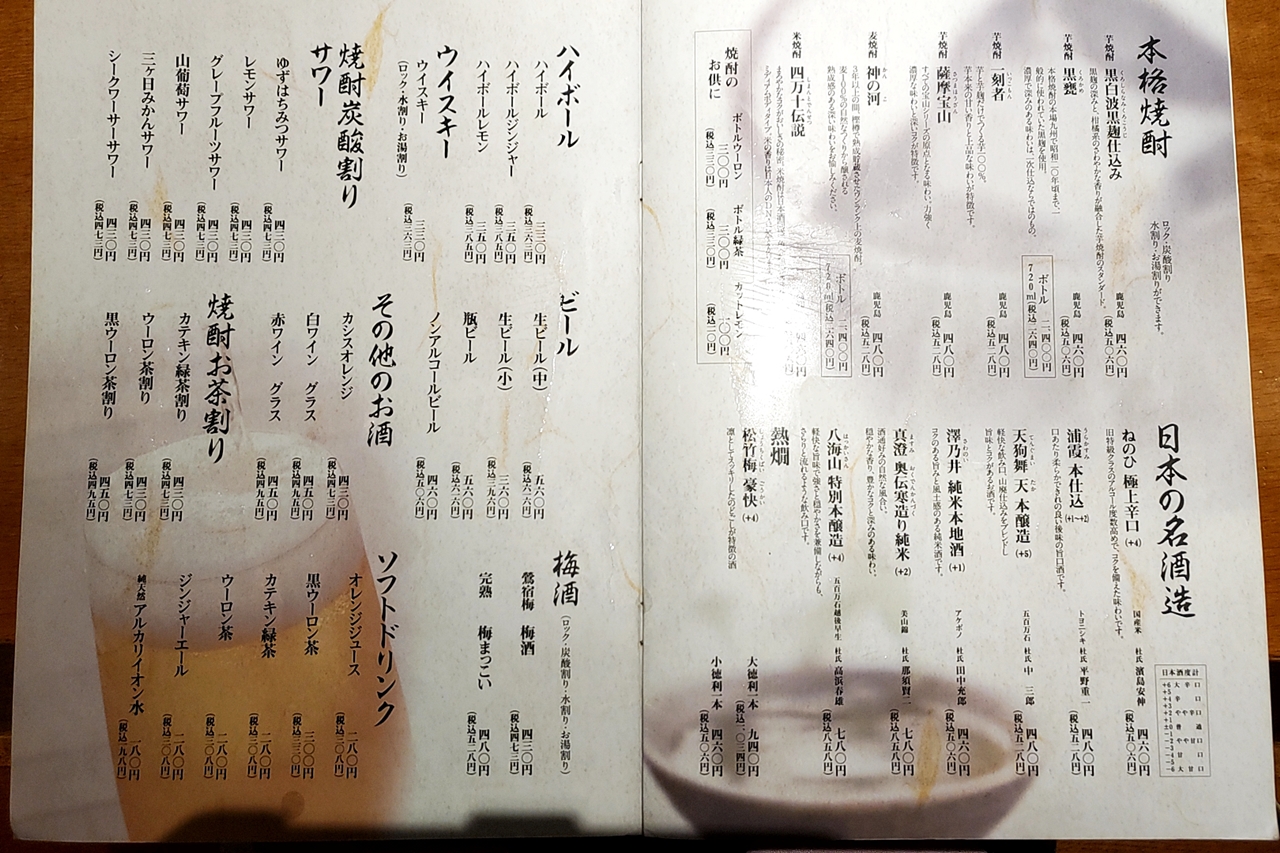 本格焼酎
ロック・炭酸割り
水割り・お湯割りができます。
芋焼酎 黒白波黒麹仕込み
鹿児島 四六〇円
(税込五〇六円)
芋焼酎 黒甕
鹿児島 四六〇円
(税込五〇六円)
ボトル 二、四〇〇円
720ml(税込二、六四〇円)
芋焼酎 一刻者
芋と芋麹だけでつくる芋一〇〇%。
芋本来の甘い香りと上品な味わいが特徴です。
鹿児島 四八〇円
(税込五二八円)
芋焼酎 薩摩宝山
鹿児島 四八〇円
(税込五二八円)
麦焼酎 神の河
鹿児島 四八〇円
(税込五二八円)
ボトル 二、四〇〇円
720ml(税込二、六四〇円)
米焼酎 四万十伝説
焼酎の
お供に
ボトルウーロン
三〇〇円
(税込三三〇円)
ボトル緑茶
三〇〇円
(税込三三〇円)
カットレモン
一〇〇円
(税込一一〇円)
日本の名酒造
ねのひ 極上辛口(+4)
旧特級クラスのアルコール度数高めで、コクを備えた味わいです。
国産米 杜氏 濱島安伸
四六〇円
(税込五〇六円)
浦霞 本仕込(+1~+2)
口あたり柔らかできれの良い後味の旨口酒です。
トヨニシキ 杜氏 平野重一
四八〇円
(税込五二八円)
天狗舞 天 本醸造(+5)
軽快な飲み口、山廃仕込みをブレンドし
旨味とコクがあるお酒です。
五百万石 杜氏 中 三郎
四八〇円
(税込五二八円)
澤乃井 純米本地酒(+1)
コクのある旨みと風土感のある純米酒です。
アケボノ 杜氏 田中充郎
四六〇円
(税込五〇六円)
真澄 奥伝寒造り純米(+2)
酒通好みの自然で風合い。
穏やかな香り、豊かなコクと深みのある味わい。
美山錦 杜氏 那須賢二
七八〇円
(税込八五八円)
八海山 特別本醸造(+4)
軽快な旨味で強さと穏やかさを兼備しながらも、
さらりと流れるような飲み口です。
五百万石越後早生 杜氏 高浜春雄
七八〇円
(税込八五八円)
熱燗
松竹梅 豪快(+4)
凛としてスッキリしたのどごしが特徴の酒
大徳利一本 九四〇円
(税込一、〇三四円)
小徳利一本 四六〇円
(税込五〇六円)
日本酒度計
+6 大辛口
+5
+4 辛口
+3
+2 やや辛口
+1
±0 普通
-1
-2 やや甘口
-3
-4 甘口
-5
-6 大甘口
ハイボール
ハイボール 三三〇円
(税込三六三円)
ハイボールジンジャー 三五〇円
(税込三八五円)
ハイボールレモン 三五〇円
(税込三八五円)
ウイスキー
ウイスキー 三三〇円
(ロック・水割り・お湯割り) (税込三六三円)
焼酎炭酸割り
サワー
ゆずはちみつサワー 四三〇円
(税込四七三円)
レモンサワー 四三〇円
(税込四七三円)
グレープフルーツサワー 四三〇円
(税込四七三円)
山葡萄サワー 四三〇円
(税込四七三円)
三ヶ日みかんサワー 四三〇円
(税込四七三円)
シークワーサーサワー 四三〇円
(税込四七三円)
ビール
生ビール(中) 五六〇円
(税込六一六円)
生ビール(小) 三六〇円
(税込三九六円)
瓶ビール 五六〇円
(税込六一六円)
ノンアルコールビール 四六〇円
(税込五〇六円)
その他のお酒
カシスオレンジ 四三〇円
(税込四七三円)
白ワイン グラス 四五〇円
(税込四九五円)
赤ワイン グラス 四五〇円
(税込四九五円)
焼酎お茶割り
カテキン緑茶割り 四三〇円
(税込四七三円)
ウーロン茶割り 四三〇円
(税込四七三円)
黒ウーロン茶割り 四五〇円
(税込四九五円)
梅酒(ロック・炭酸割り・水割り・お湯割り)
鶯宿梅 梅酒 四三〇円
(税込四七三円)
完熟 梅まっこい 四八〇円
(税込五二八円)
ソフトドリンク
オレンジジュース 二八〇円
(税込三〇八円)
黒ウーロン茶 三〇〇円
(税込三三〇円)
カテキン緑茶 二八〇円
(税込三〇八円)
ウーロン茶 二八〇円
(税込三〇八円)
ジンジャーエール 二八〇円
(税込三〇八円)
純天然 アルカリイオン水 一八〇円
(税込一九八円)